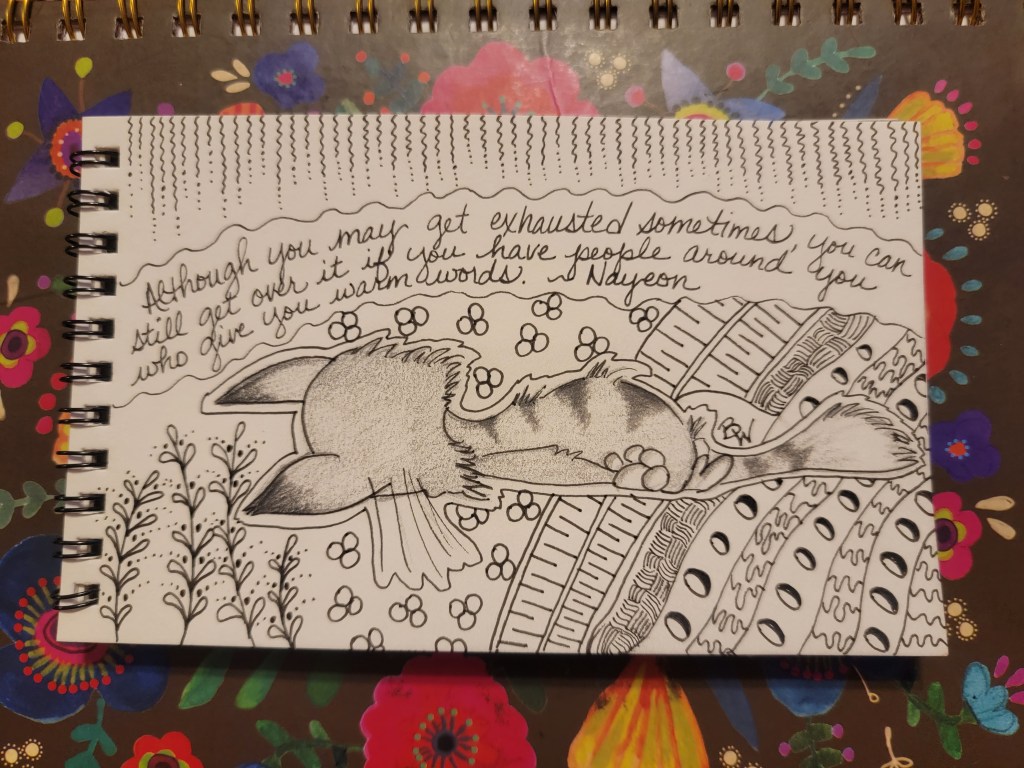 Although you may get exhausted sometimes, you can
still get over it if you have people around you
who give you warm words. ~ Nayeon